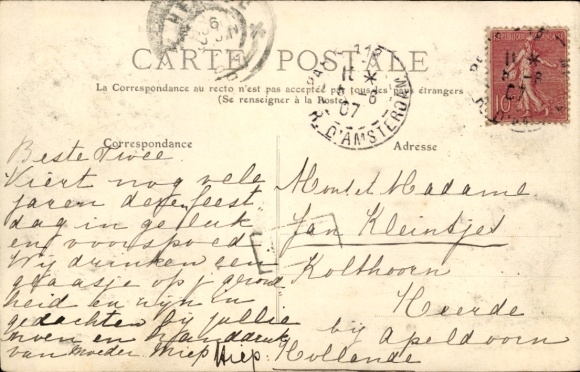 CARTE POSTALE
La Correspondance au recto n'est pas acceptée par tous les pays étrangers
(Se renseigner à la Poste)
R. D'AMSTERDAM
07
10
Correspondance
Beste Twee
Viert nog vele
jaren deze feest
dag in geluk
en voorspoed
Wij drinken een
glaasje op j gezond
heid en zijn in
gedachten bij jullie
en handdruk
van moeder Miep
Adresse
Mons et Madame
Jan Kleintjes
Kolthoorn
Heerde
bij Apeldoorn
Hollande